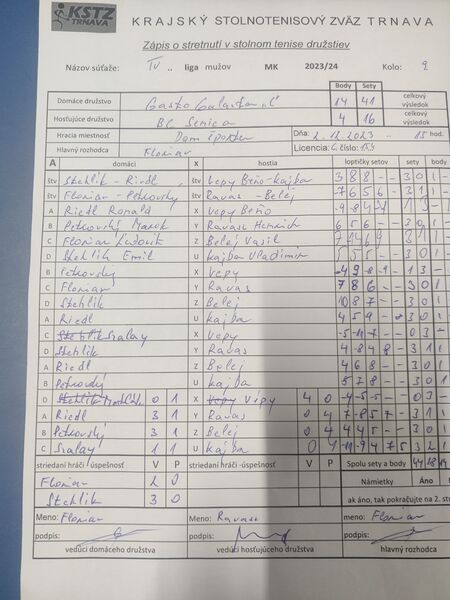 KSTZ
TRNAVA
KRAJSKÝ STOLNOTENISOVÝ ZVÄZ TRNAVA
Zápis o stretnutí v stolnom tenise družstiev
Názov súťaže: IV .. liga mužov MK 2023/24 Kolo: 9
Body Sety
Domáce družstvo Gasto Galanta "C" 14 41 celkový výsledok
Hosťujúce družstvo BC Senica 4 16 celkový výsledok
Hracia miestnosť Dom športov Dňa: 2.12.2023 15 hod.
Hlavný rozhodca Florian Licencia č. C 153
A domáci X hostia loptičky setov sety body
štv Stehlík - Riedl štv Vepy Beňo - Kajba 3 8 8 - - 3 0 1
štv Florian - Petkovský štv Ravas - Belej 3 1 1
A Riedl Ronald X Vepy Beňo 1 3 -
B Petkovský Marek Y Ravas Henrich 6 5 6 - - 3 0 1
C Florian Ľudovít Z Belej Vasil 3 1 1
D Stehlík Emil U Kajba Vladimír 5 5 5 - - 3 0 1
B Petkovský X Vepy -4 9 -8 -9 - 1 3 -
C Florian Y Ravas 7 8 6 - - 3 0 1
D Stehlík Z Belej 10 8 7 - - 3 0 1
A Riedl U Kajba 4 5 9 - - 3 0 1
C Szalay X Vepy -5 -11 -7 - - 0 3 -
D Stehlík Y Ravas 3 1 1
A Riedl Z Belej 4 6 8 - - 3 0 1
B Petkovský U Kajba 5 7 8 - - 3 0 1
D 0 1 X Vépy 4 0 -4 -5 -5 - - 0 3 -
A Riedl 3 1 Y Ravas 0 4 7 -8 5 7 - 3 1 1
B Petkovský 3 1 Z Belej 0 4 4 4 5 - - 3 0 1
C Szalay 1 1 U Kajba 0 4 -11 -9 4 7 5 3 2 1
striedaní hráči - úspešnosť V P striedaní hráči - úspešnosť V P Spolu sety a body
Florian 2 0 Námietky Áno
Stehlík 3 0 ak áno, tak pokračujte na 2. str
Meno: Florian Meno: Ravas Meno: Florian
podpis: podpis: podpis:
vedúci domáceho družstva vedúci hosťujúceho družstva hlavný rozhodca